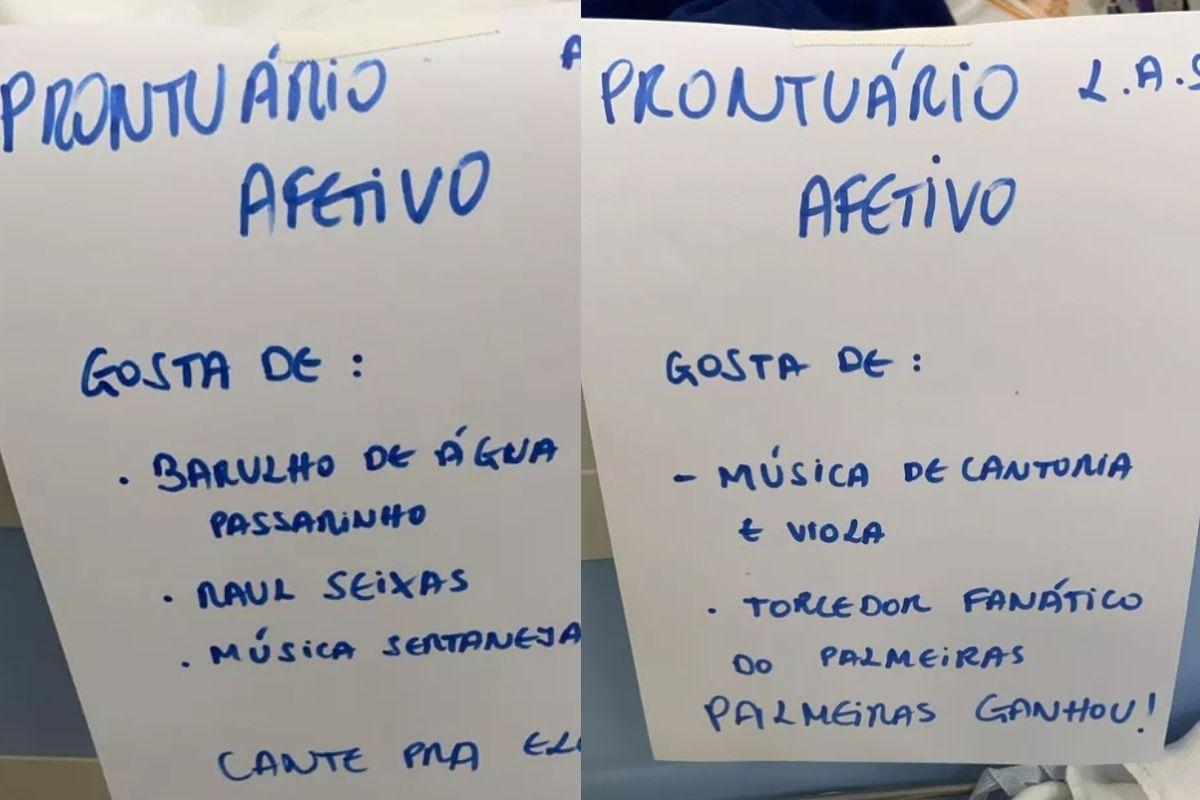 PRONTUÁRIO
AFETIVO
GOSTA DE :
. BARULHO DE ÁGUA
PASSARINHO
. RAUL SEIXAS
. MÚSICA SERTANEJA
CANTE PRA
PRONTUÁRIO L.A.S
AFETIVO
GOSTA DE :
- MÚSICA DE CANTORIA
E VIOLA
. TORCEDOR FANÁTICO
DO PALMEIRAS
PALMEIRAS GANHOU!